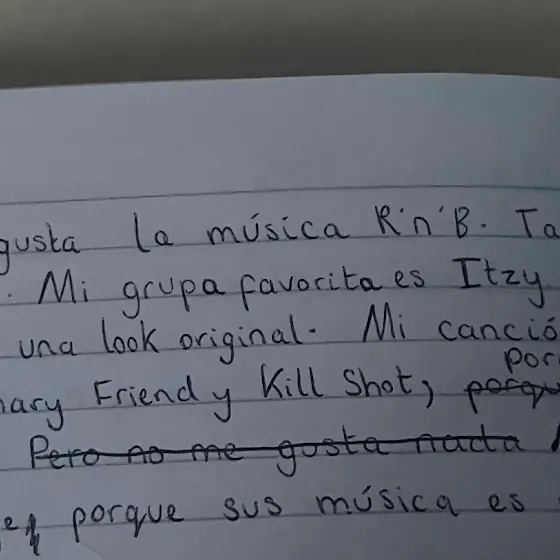 gusta la música R'n'B. Ta
. Mi grupa favorita es Itzy
una look original. Mi canció
nary Friend y Kill Shot, porqu
por
Pero no me gusta nada
porque sus música es